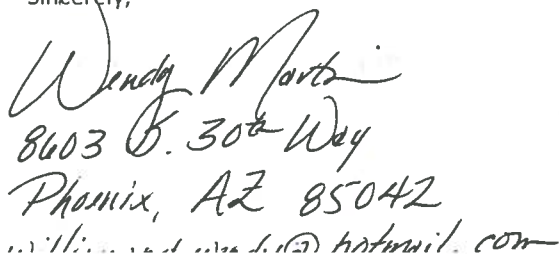 Sincerely,
Wendy Martin
8603 S. 30th Way
Phoenix, AZ 85042
@hotmail.com